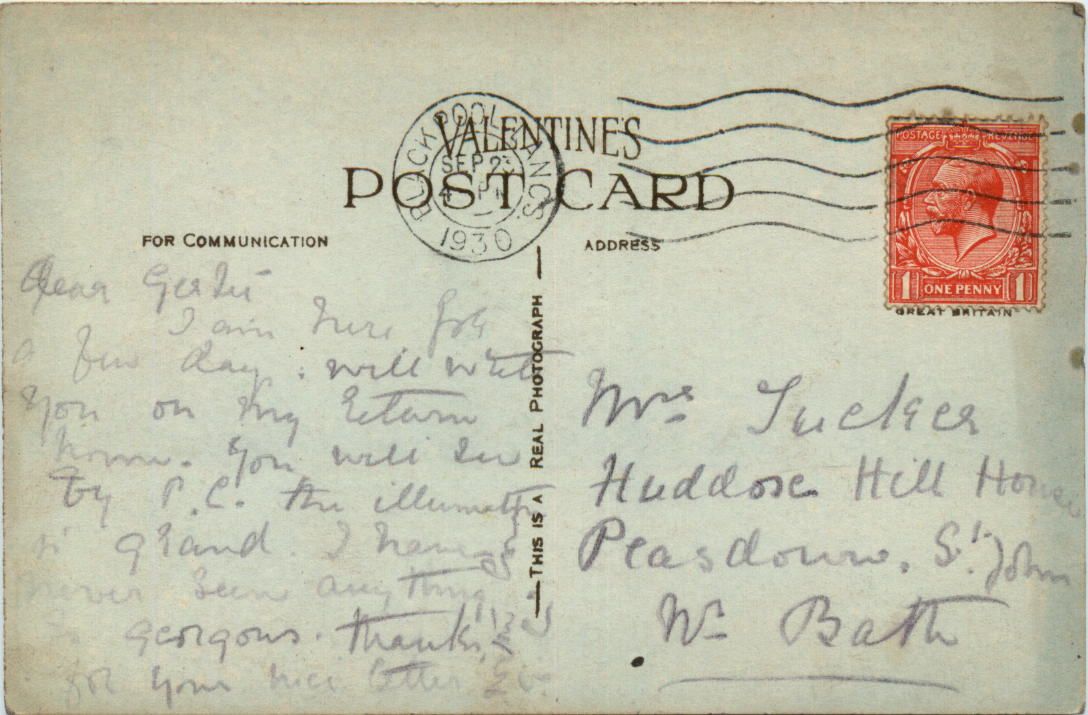 VALENTINE'S
POST CARD
BLACKPOOL LANCS.
SEP 23
4
1930
POSTAGE REVENUE
1 ONE PENNY 1
GREAT BRITAIN
FOR COMMUNICATION
ADDRESS
THIS IS A REAL PHOTOGRAPH
Dear Gertie
I am here for
a few days. will write
You on my return
home. You will see
by P.C. the
is grand. I have
never seen anything
so georgous. thanks
for your nice letter
Mrs Tucker
Huddose Hill House
Peasdown, St. John
Nr Bath